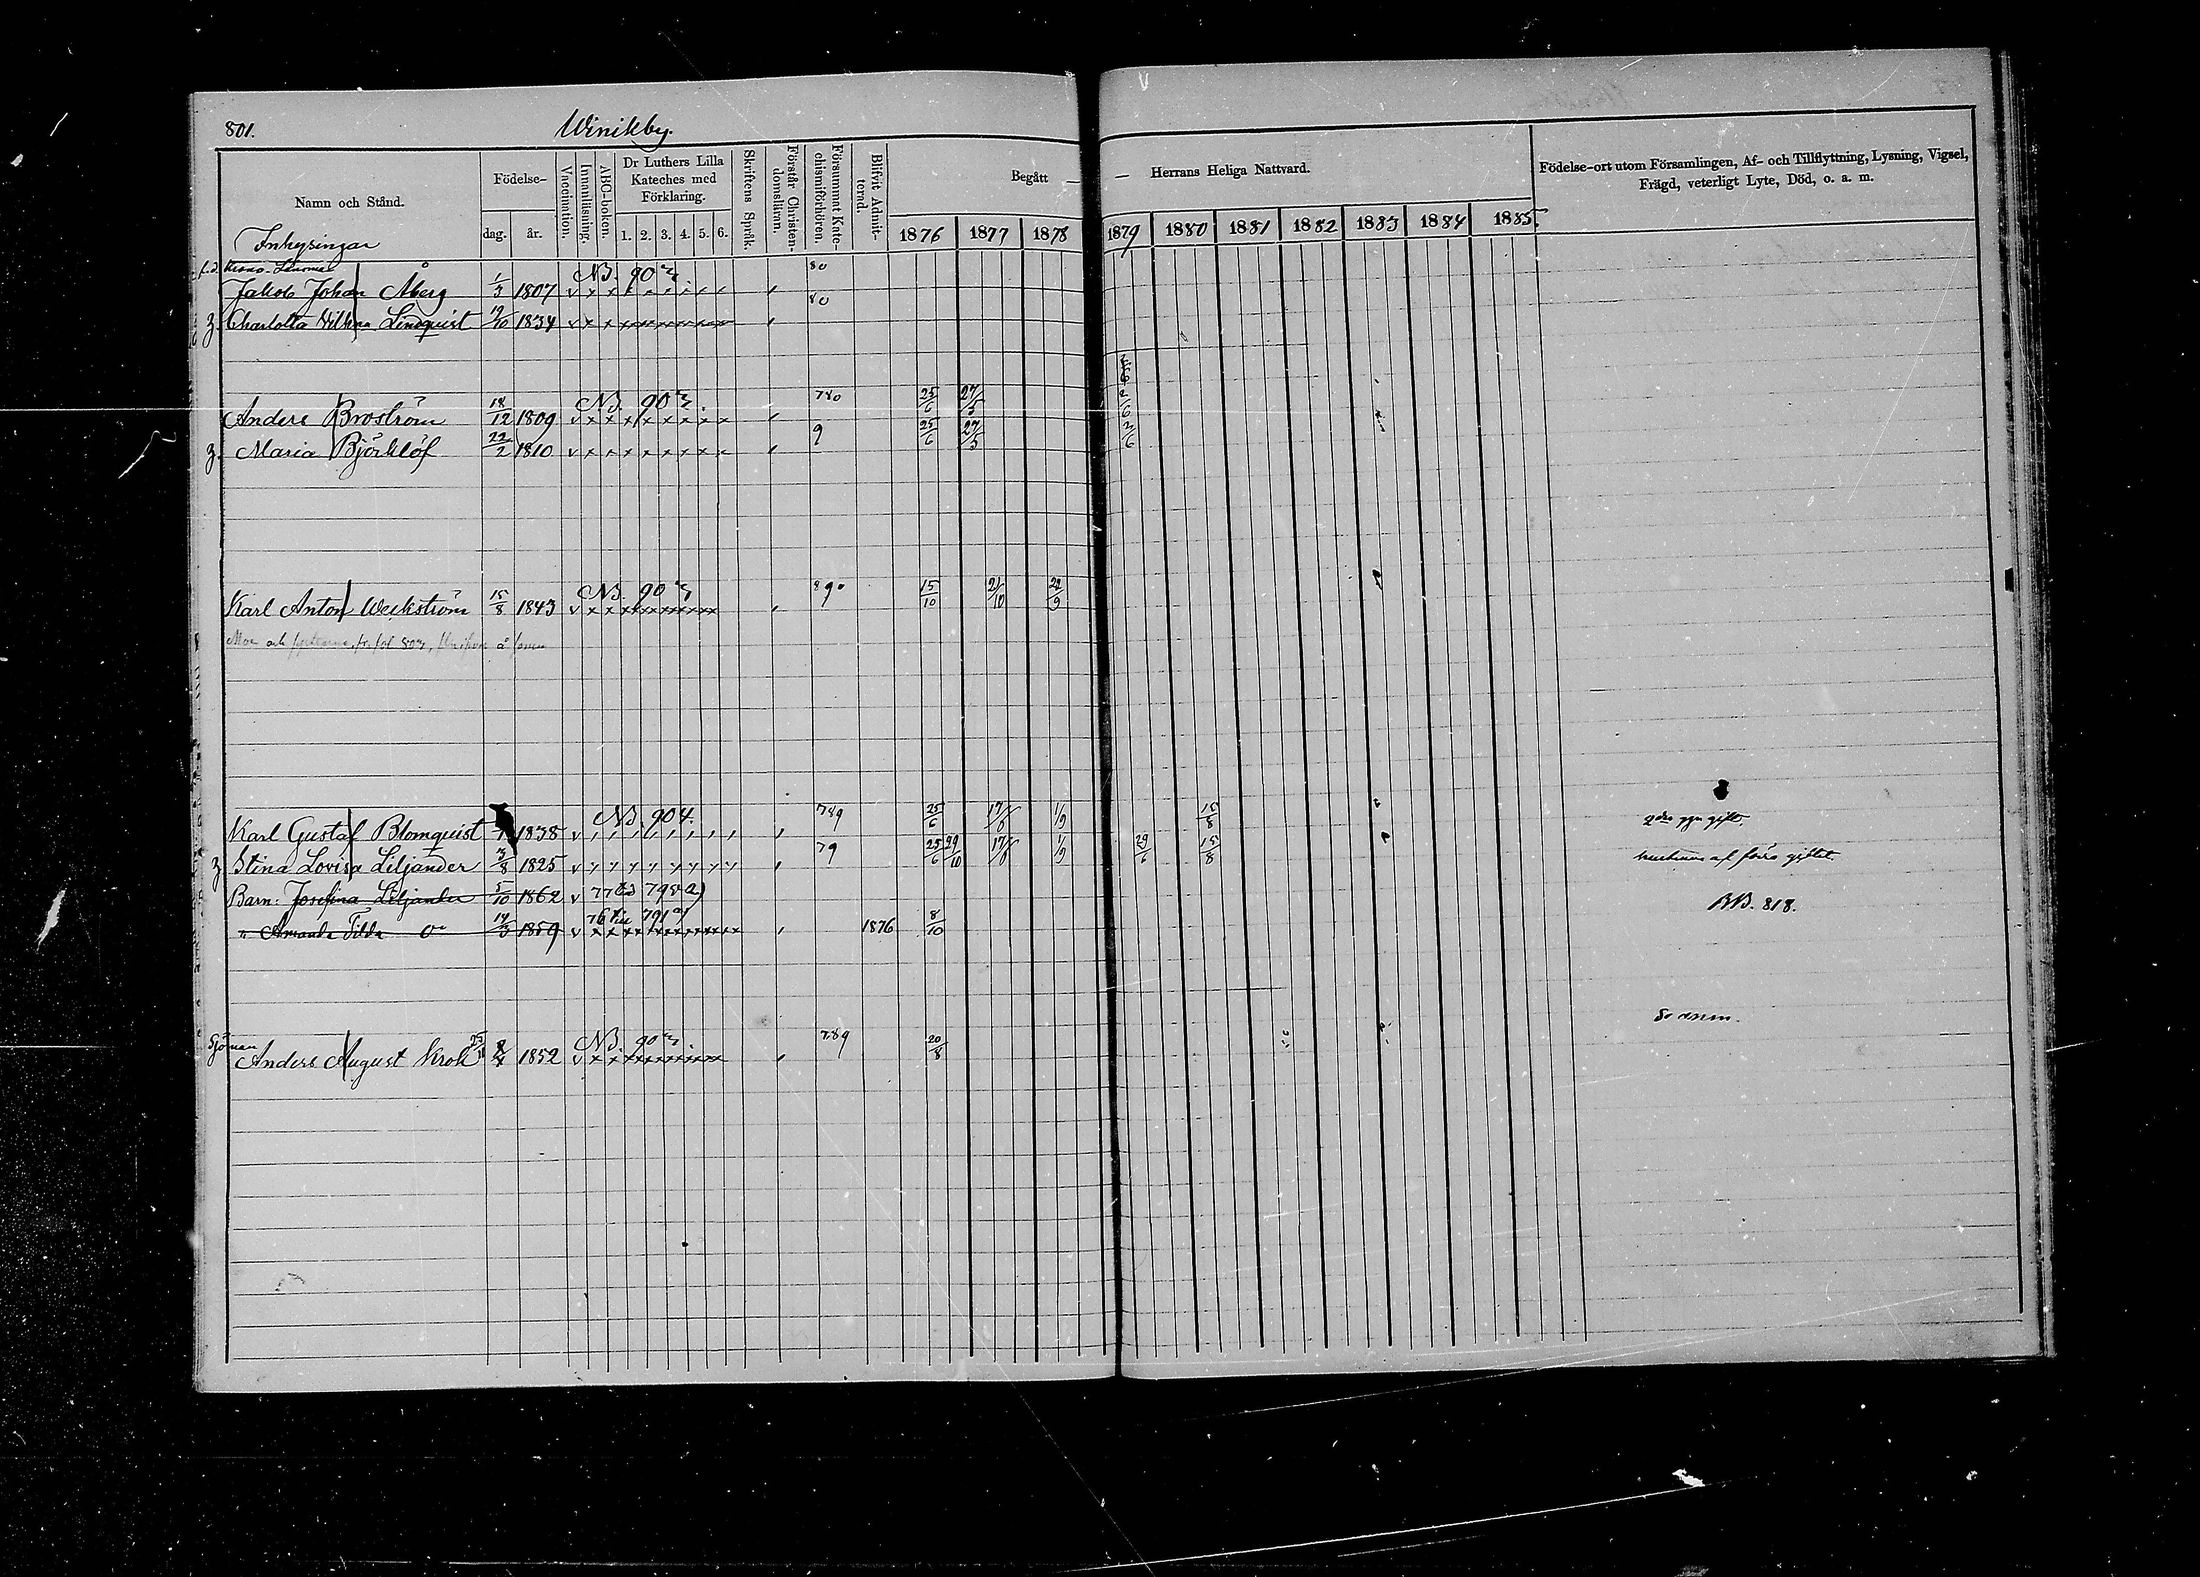 801.
Winikby.
Namn och Stånd.
Födelse-
dag.
år.
Vaccination.
Innanläsning.
ABC-boken.
Dr Luthers Lilla
Kateches med
Förklaring.
1. 2. 3. 4. 5. 6.
Skriftens Språk.
Förstår Christen-
domsläran.
Försummat Kate-
chismiförhören.
Blifvit Admit-
terad.
Begått — — Herrans Heliga Nattvard.
1876 1877 1878 1879 1880 1881 1882 1883 1884 1885
Födelse-ort utom Församlingen, Af- och Tillflyttning, Lysning, Vigsel,
Frägd, veterligt Lyte, Död, o. a. m.
Inhysingar
Jakob Johan Åberg 1/3 1807 v NB. 903. 80
Charlotta Vilhna Lindquist 19/10 1834 v 80
Anders Broström 18/12 1809 v NB. 903. 780 25/6 27/5 2/6
Maria Björklöf 22/2 1810 v 9 25/6 27/5 2/6
Karl Anton Weckström 15/8 1843 v NB. 903 890 15/10 21/10 22/9
Karl Gustaf Blomquist 1838 v NB. 904. 789 25/6 17/6 1/9 15/8 2dra ggn gift.
Stina Lovisa Liljander 3/8 1825 v 79 25/6 29/10 17/6 1/9 29/6 15/8
Barn: Josefina Liljander 5/10 1862 v BB. 818.
" Amanda Tilda 14/3 1859 v 76 till 791 1876 8/10
Sjöman
Anders August Krok 1852 v NB. 903. 789 20/8